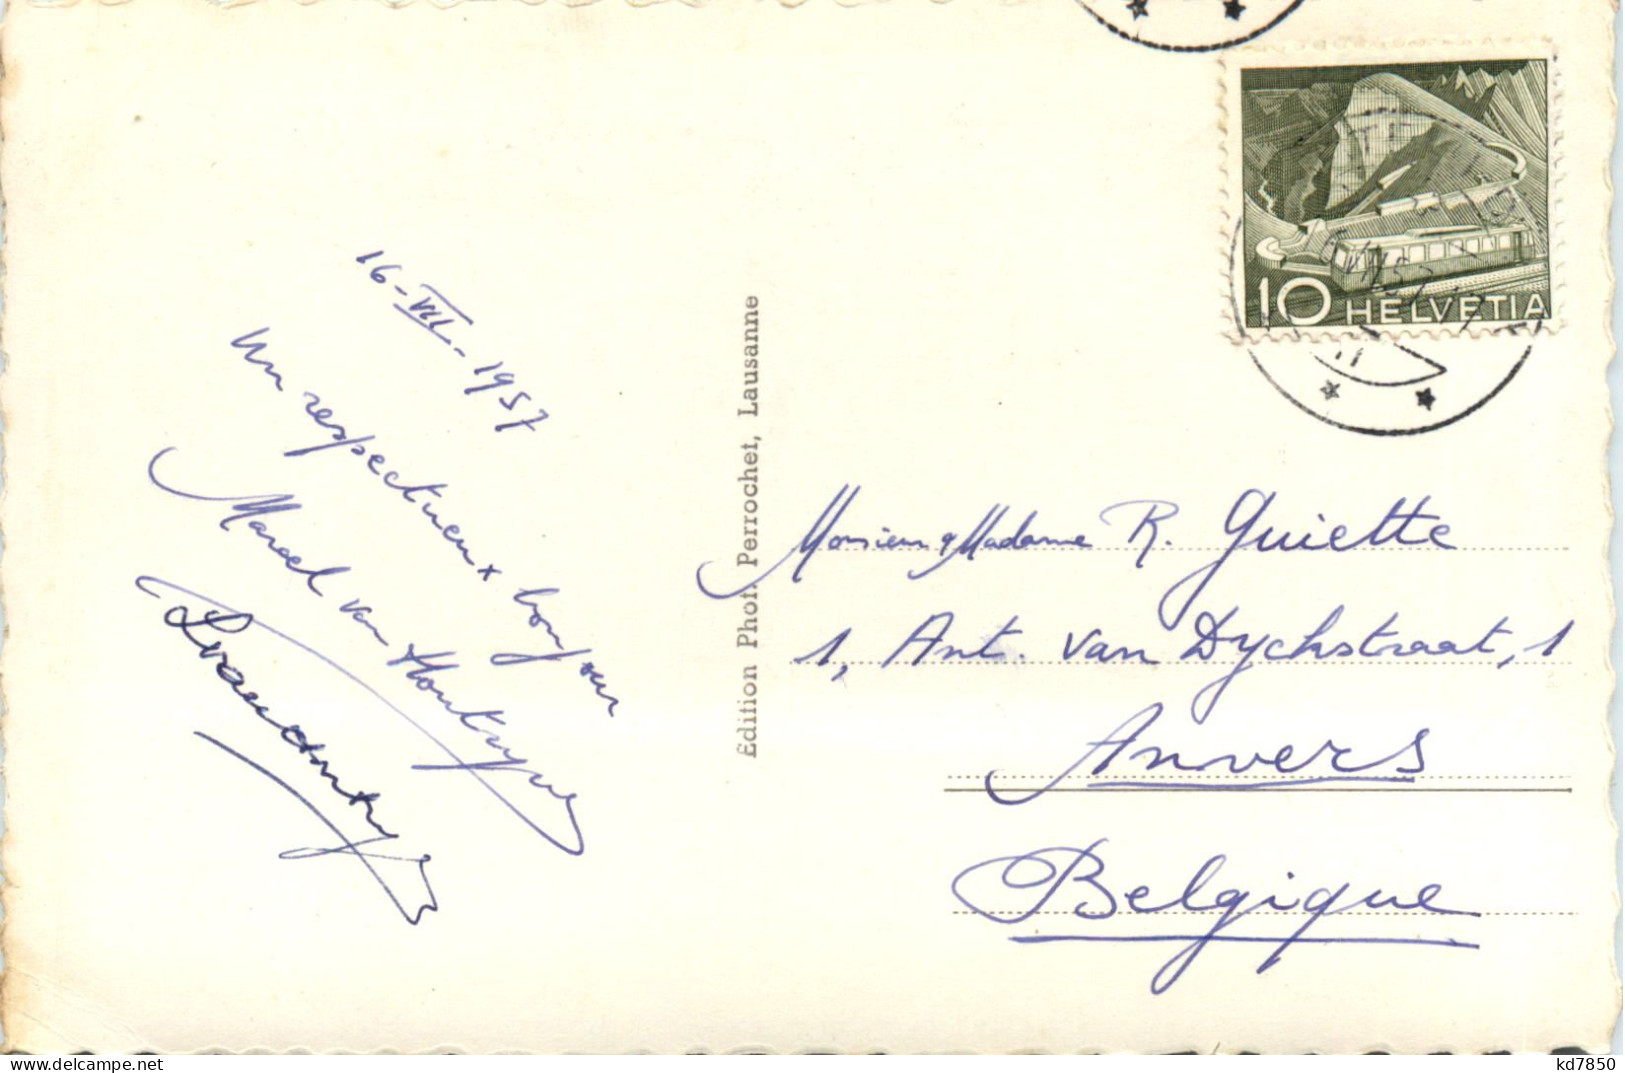 16-VII-1957
Un respectueux bonjour
Marcel van Houtryve
Édition Phot. Perrochet, Lausanne
10 HELVETIA
Monsieur & Madame R. Guiette
1, Ant. Van Dyckstraat, 1
Anvers
Belgique
kd7850